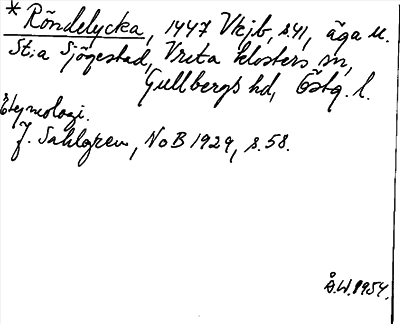 * Röndelycka, 1447 Vkjb, s.41, äga u.
St:a Sjögestad, Vreta klosters sn,
Gullbergs hd, Östg. l.
Etymologi.
J. Sahlgren, NoB 1929, s.58.
Å.W. 1954.